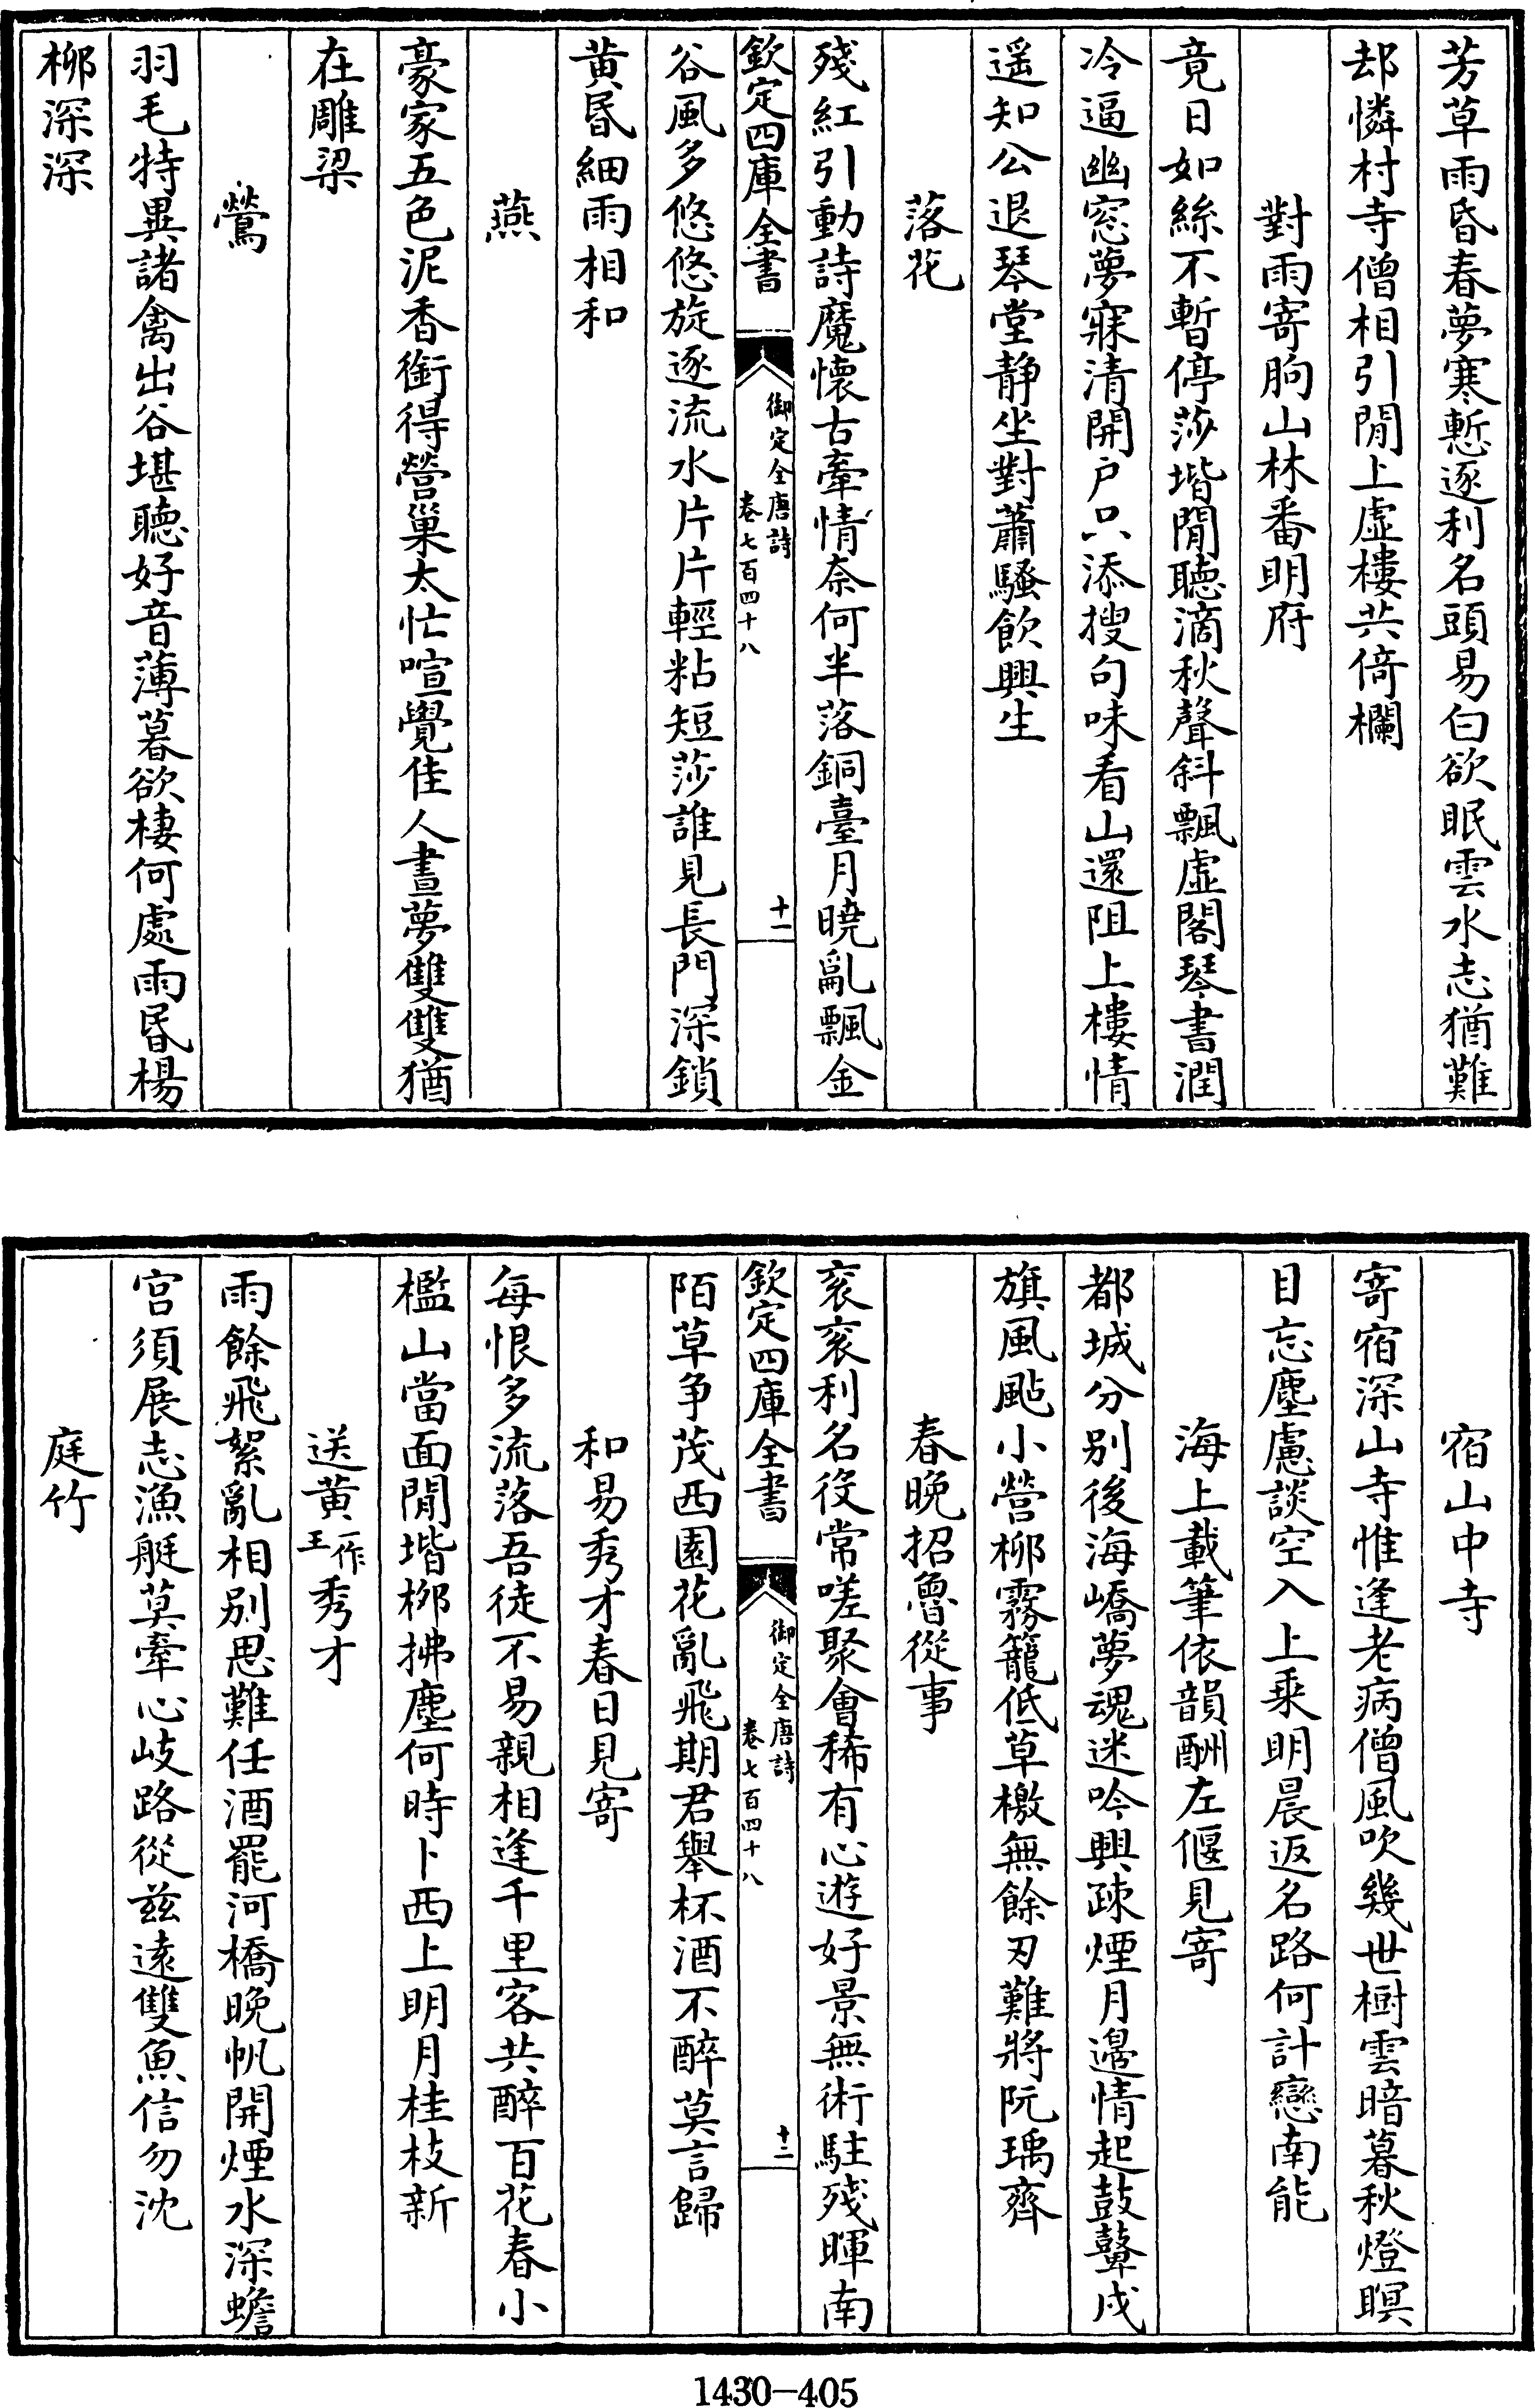 芳草雨昏春夢寒慙逐利名頭易白欲眠雲水志猶難
却憐村寺僧相引閒上虛樓共倚欄
對雨寄朐山林番明府
竟日如絲不暫停莎堦閒聽滴秋聲斜飄虛閣琴書潤
冷逼幽窓夢寐清開户只添搜句味看山還阻上樓情
遥知公退琴堂静坐對蕭騷飲興生
落花
殘紅引動詩魔懷古牽情奈何半落銅臺月曉亂飄金
欽定四庫全書
御定全唐詩
卷七百四十八
十一
谷風多悠悠旋逐流水片片輕粘短莎誰見長門深鎖
黄昏細雨相和
燕
豪家五色泥香銜得營巢太忙喧覺佳人晝夢雙雙猶
在雕梁
鶯
羽毛特異諸禽出谷堪聽好音薄暮欲棲何處雨昏楊
柳深深
宿山中寺
寄宿深山寺惟逢老病僧風吹幾世樹雲暗暮秋燈瞑
目忘塵慮談空入上乘明晨返名路何計戀南能
海上載筆依韻酬左偃見寄
都城分别後海嶠夢魂迷吟興疎煙月邊情起鼓鼙戍
旗風颭小營柳霧籠低草檄無餘刃難將阮瑀齊
春晚招魯從事
衮衮利名役常嗟聚會稀有心遊好景無術駐殘暉南
欽定四庫全書
御定全唐詩
卷七百四十八
十二
陌草争茂西園花亂飛期君舉杯酒不醉莫言歸
和易秀才春日見寄
每恨多流落吾徒不易親相逢千里客共醉百花春小
檻山當面閒堦柳拂塵何時卜西上明月桂枝新
送黄一作王秀才
雨餘飛絮亂相别思難任酒罷河橋晚帆開煙水深蟾
宫須展志漁艇莫牽心岐路從兹遠雙魚信勿沈
庭竹
1430-405